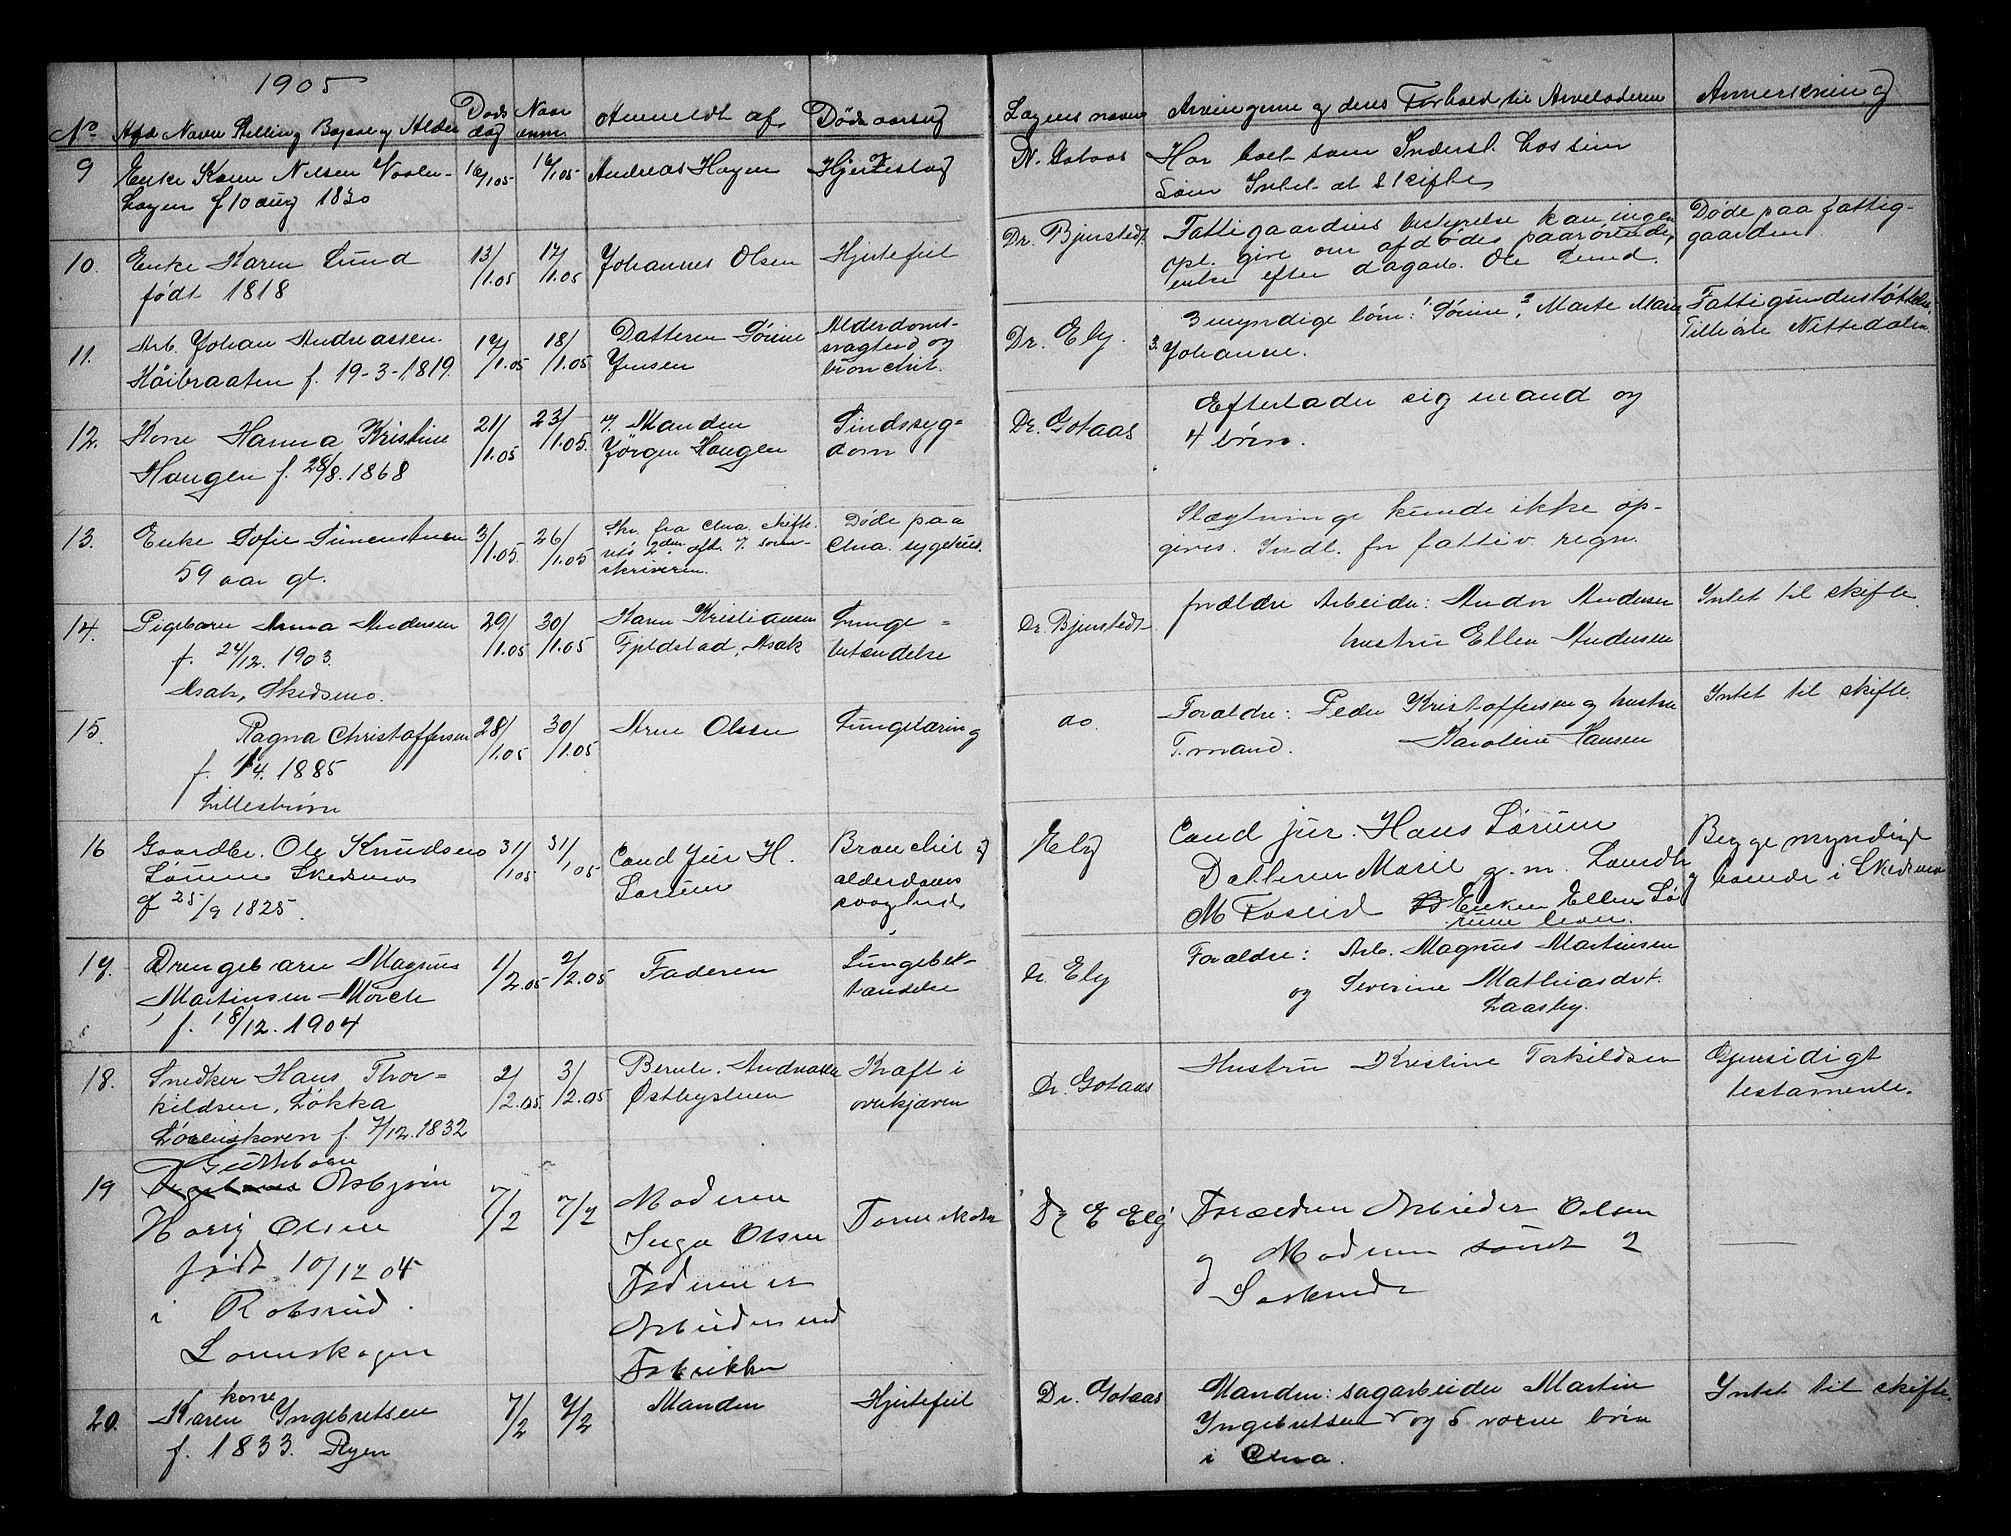 1905
No. Afd. Navn Stilling, Bopæl og Alder
Døds dag
Naar anm.
Anmeldt af
Dødsaarsag
Lægens navn
Arvingerne og deres Forhold til Arveladeren
Anmerkning
9 Enke Karen Nilsen Vaaler-
hagen f 10 aug 1830
16/1 05
16/1 05
Andreas Hagen
Hjerteslag
Dr. Gotaas
Har boet som Inderst hos sin
søn Intet at skifte
10. Enke Karen Lund
født 1818
13/1.05
17/1.05
Johannes Olsen
Hjertefeil
Dr. Bjerstedt
Fattiggaardens bestyrelse kan ingen
opl. give om afdødes paarørende,
enke efter dagarb. Ole Lund.
Døde paa fattig-
gaarden
11. Arb. Johan Andreassen
Høibraaten f. 19-3-1819.
17/1.05
18/1.05
Datteren Sørine
Jensen
Alderdoms-
svaghed og
bronchit.
Dr. Ely.
3 myndige børn: 1. Sørine, 2. Marte Maria
3. Johanne.
Fattigunderstøttelse.
Tilhørte Nittedalen.
12. Kone Hanna Kristine
Haugen f. 28/8. 1868
21/1.05
23/1.05.
Manden
Jørgen Haugen
Sindssyg-
dom
Dr. Gotaas
Efterlader sig mand og
4 børn.
13. Enke Sofie Simenstuen
59 aar gl.
3/1.05.
26/1.05
Skr. fra Chra. skifte-
ret's 2den afd. t. soren-
skriveren.
Døde paa
Chra. sygehus.
Slægtninge kunde ikke op-
gives. Indl. for fattigv. regn.
14. Pigebarn Anna Andersen
f. 24/12. 1903.
Asak, Skedsmo.
29/1.05
30/1.05
Karen Kristiansen
Fjeldstad, Asak
Lunge-
betændelse
Dr. Bjerstedt
forældre Arbeider: Andr Andersen
hustru Ellen Andersen
Intet til skifte.
15. Ragna Christoffersen
f. 1/4. 1885
Lillestrøm
28/1.05
30/1.05
Arne Olsen
Lungetæring
do
Forældre: Peder Kristoffersen og hustru
T.mand. Karoline Hansen
Intet til skifte.
16 Gaardbr. Ole Knudsen
Sørum Skedsmo
f 25/9 1825.
31/1 05
31/1 05
Cand Jur H.
Sørum
Bronchit og
alderdoms
svaghed
Ely
Cand jur. Hans Sørum
Datteren Marie g. m. Landh
M Fosseid Enken Ellen Sø
rum lever.
Begge myndige
og boende i Skedsmo
17. Drengebarn Magnus
Martinsen Mørch
f. 18/12. 1904
1/2.05
2/2.05
Faderen
Lungebe-
tændelse
Dr. Ely
Forældre: Arb. Magnus Martinsen
og Severine Mathiasdat.
Laasby.
18. Snedker Hans Thor-
kildsen, Løkka
Lørenskoven f. 7/12. 1832
2/2.05.
3/2.05
Bernh. Andreassen
Østbystuen
Kræft i
overkjæven
Dr. Gotaas
Hustru Kristine Torkildsen
Gjensidigt
testamente.
19 Guttebarn
Pigebarn Asbjørn
Harry Olsen
født 10/12 04
i Robsrud.
Lørenskogen
7/2
7/2
Moderen
Inga Olsen
Faderen er
Arbeider ved
Fabrikken
Dr E Ely
Forældrene Arbeider Olsen
og Moderen samt 2
Søskende
20. kone
Karen Ingebretsen
f. 1833. Ryen
7/2
7/2
Manden
Hjertefeil
Dr. Gotaas
Manden: sagarbeider Martin
Ingebretsen og 5 voxne børn
i Chra.
Intet til skifte.